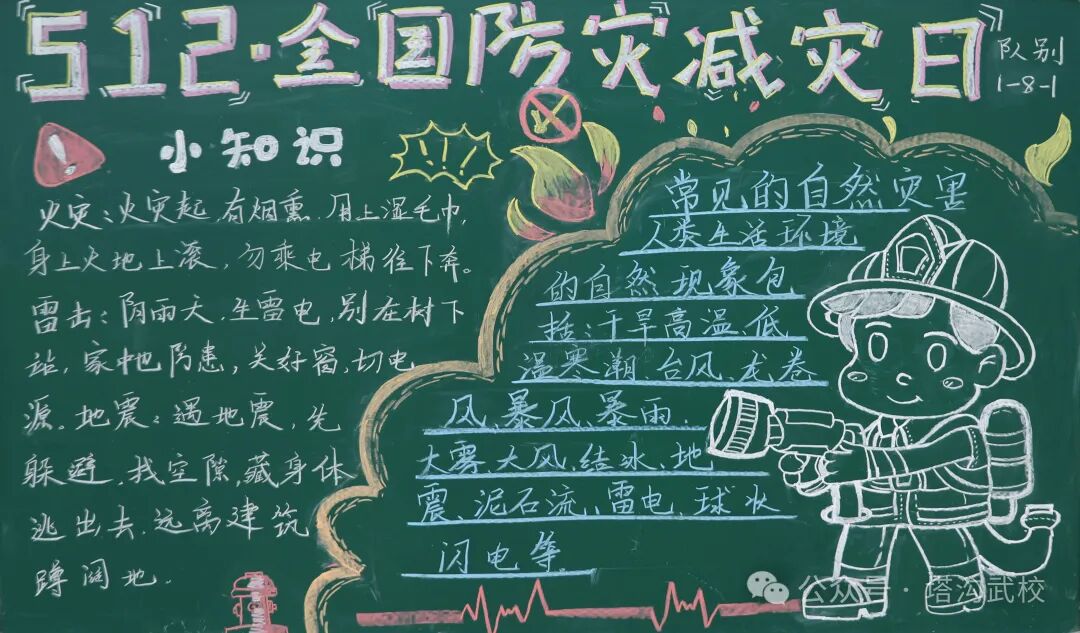 512·全国防灾减灾日
队别
1-8-1
小知识
火灾:火灾起,有烟熏.用上湿毛巾,
身上火地上滚,勿乘电梯往下奔。
雷击:阴雨天,生雷电,别在树下
站,家中也防患,关好窗,切电
源。地震:遇地震,先
躲避,找空隙,藏身体
逃出去.远离建筑
蹲阔地.
常见的自然灾害
人类生活环境
的自然现象包
括:干旱高温、低
温寒潮、台风、龙卷
风、暴风、暴雨
大雾、大风、结冰、地
震、泥石流、雷电、球状
闪电等.
公众号·塔沟武校